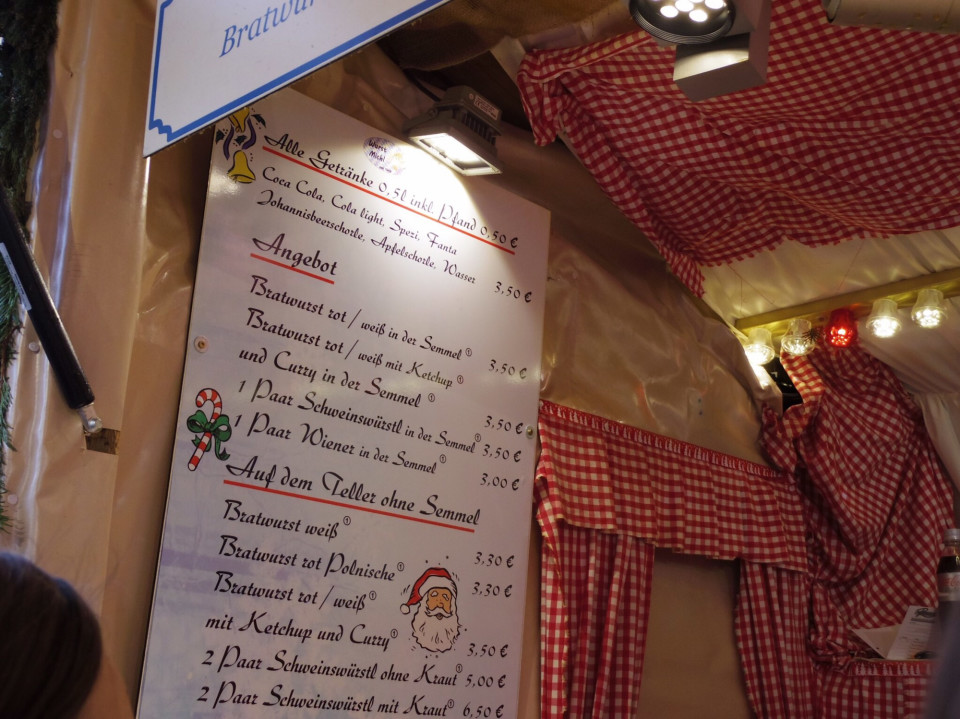 Bratwur
Wurst
Michl
Alle Getränke 0,5l inkl. Pfand 0,50 €
Coca Cola, Cola light, Spezi, Fanta
Johannisbeerschorle, Apfelschorle, Wasser 3,50 €
Angebot
Bratwurst rot / weiß in der Semmel ① 3,50 €
Bratwurst rot / weiß mit Ketchup ①
und Curry in der Semmel ① 3,50 €
1 Paar Schweinswürstl in der Semmel ① 3,50 €
1 Paar Wiener in der Semmel ① 3,00 €
Auf dem Teller ohne Semmel
Bratwurst weiß ① 3,30 €
Bratwurst rot Polnische ① 3,30 €
Bratwurst rot / weiß ①
mit Ketchup und Curry ① 3,50 €
2 Paar Schweinswürstl ohne Kraut ① 5,00 €
2 Paar Schweinswürstl mit Kraut ① 6,50 €